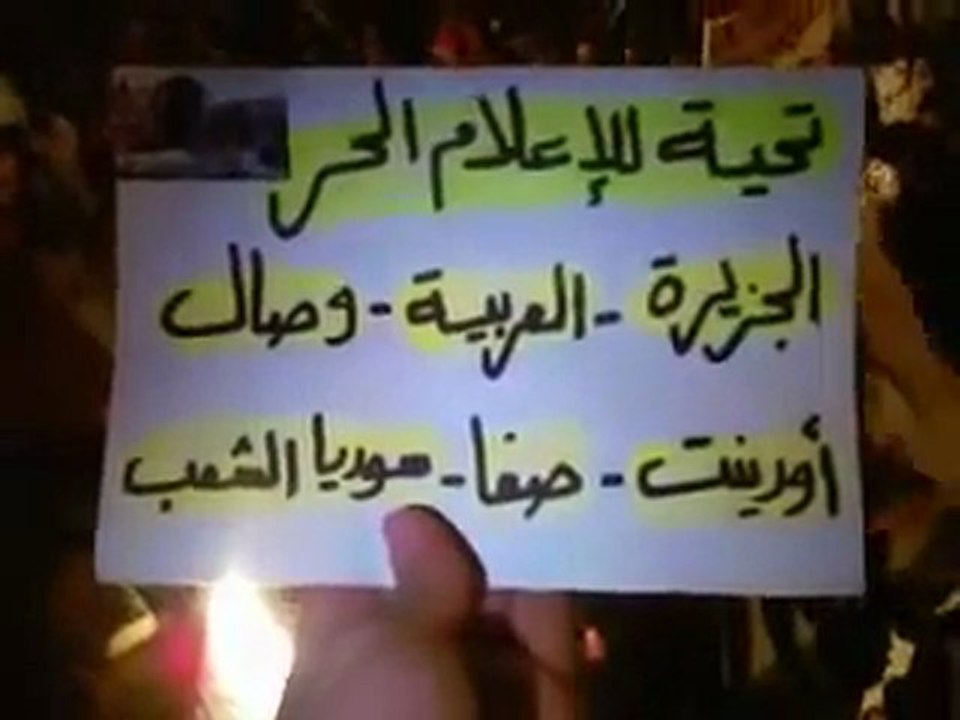 تحية للإعلام الحر
الجزيرة - العربية - وصال
أورينت - صفا - سوريا الشعب